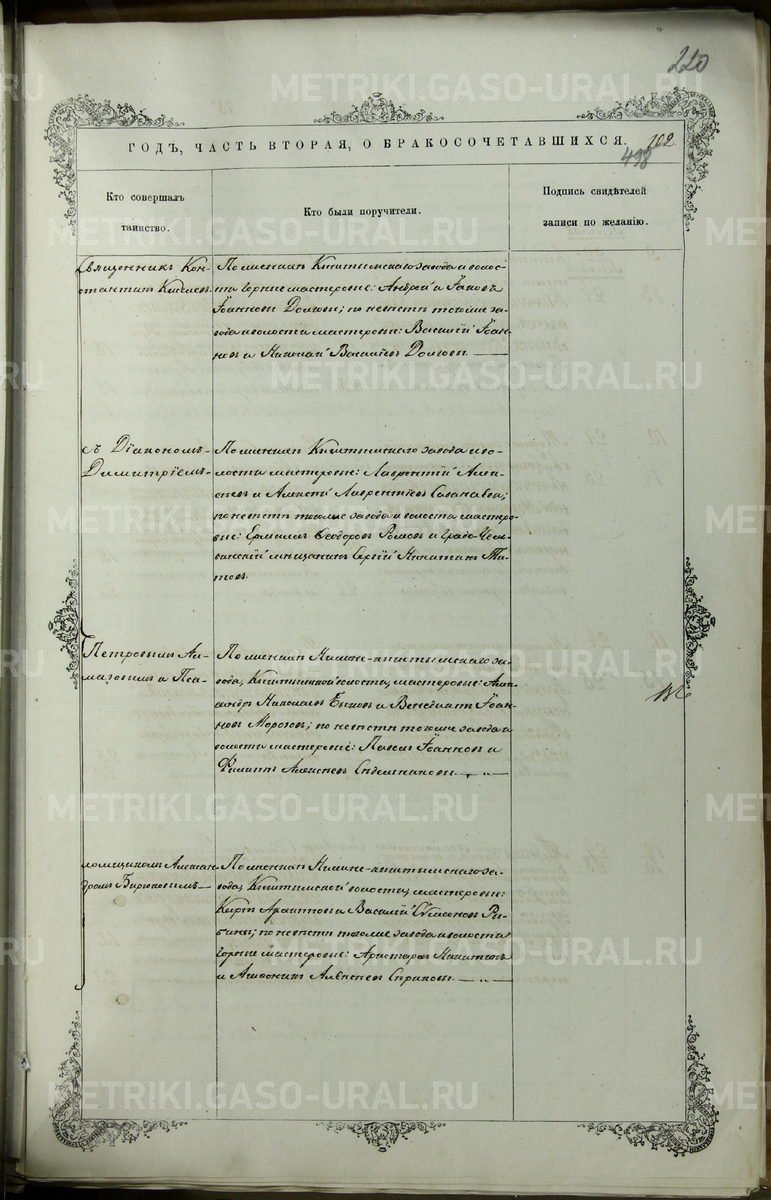 220
ГОДЪ, ЧАСТЬ ВТОРАЯ, О БРАКОСОЧЕТАВШИХСЯ.
102
498
Кто совершалъ
таинство.
Кто были поручители.
Подпись свидѣтелей
записи по желанію.
Священникъ Кон-
стантинъ Киселевъ
По женихѣ Кыштымскаго завода и волос-
ти горные мастеровые: Андрей и Іаковъ
Іоанновы Долговы; по невѣстѣ того же за-
вода и волости мастеровые: Василій Іоан-
новъ и Николай Васильевъ Долговы.
съ Діакономъ
Димитріемъ
По женихѣ Кыштымскаго завода и во-
лости мастеровые: Лаврентій Алек-
сѣевъ и Алексѣй Лаврентіевъ
по невѣстѣ того же завода и волости мастеро-
вые: Ермилъ Ѳеодоровъ и Градо-Челя-
бинскій мѣщанинъ Сергій Никитинъ Ти-
товъ.
Петровымъ Ал-
мазовымъ и Пса-
По женихѣ Нижне-Кыштымскаго за-
вода, Кыштымской волости, мастеровые: Алек-
сандръ Николаевъ Быковъ и Венедиктъ Іоан-
новъ Морозовъ; по невѣстѣ того же завода и
волости мастеровые: Павелъ Іоанновъ и
Филиппъ Алексѣевъ
ломщикомъ Алексан-
дромъ Бирюковымъ
По женихѣ Нижне-Кыштымскаго за-
вода, Кыштымской волости, мастеровые:
Василій Симеоновъ Ры-
бины; по невѣстѣ того же завода и волости
горные мастеровые: Аристархъ Никитинъ
и Алексѣевъ
METRIKI.GASO-URAL.RU